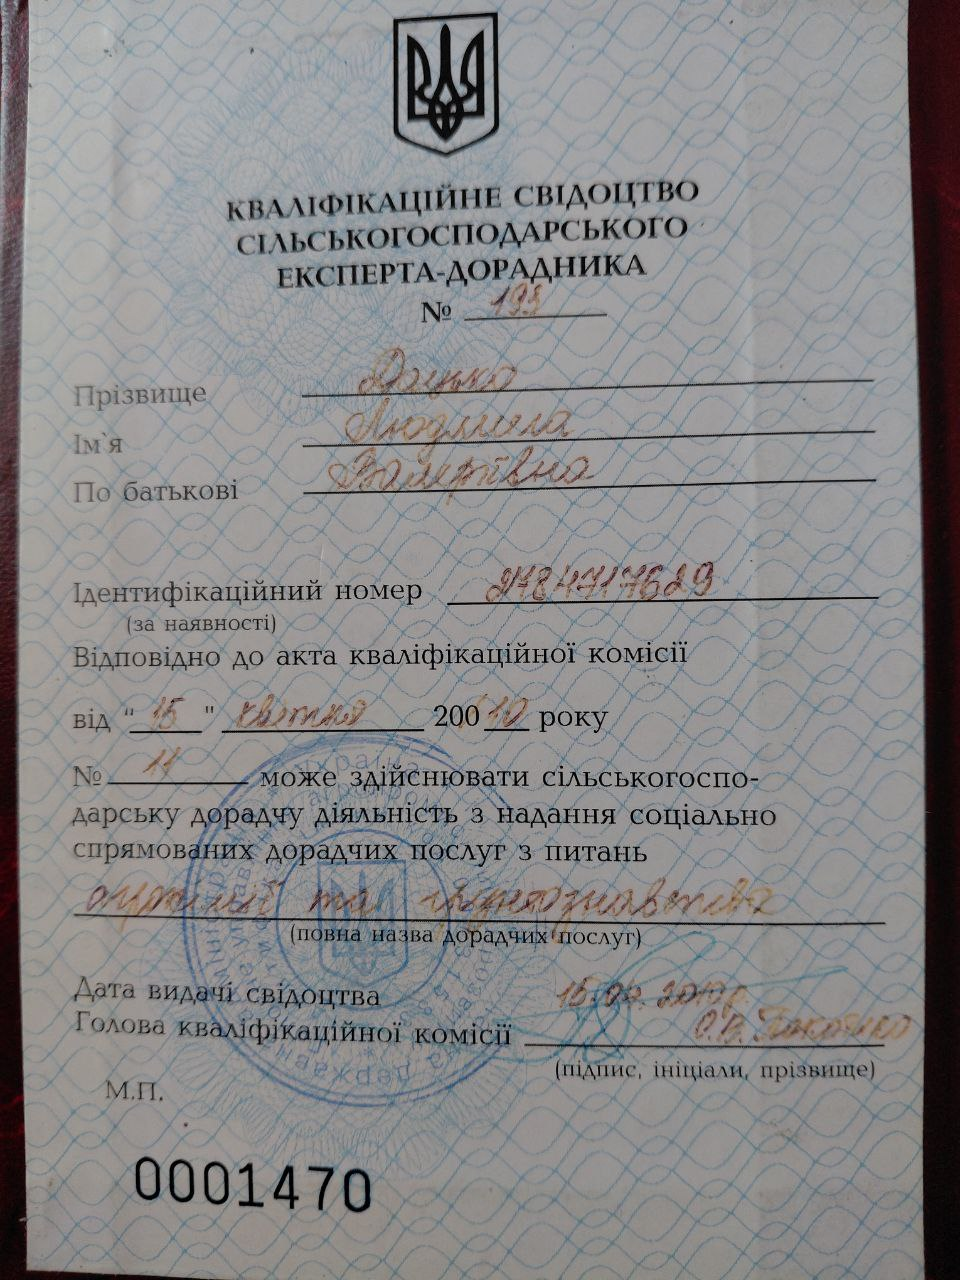 КВАЛІФІКАЦІЙНЕ СВІДОЦТВО
СІЛЬСЬКОГОСПОДАРСЬКОГО
ЕКСПЕРТА-ДОРАДНИКА
№ 193
Прізвище Доцько
Ім`я Людмила
По батькові Валеріївна
Ідентифікаційний номер 2784717629
(за наявності)
Відповідно до акта кваліфікаційної комісії
від " 15 " квітня 200 10 року
№ 11 може здійснювати сільськогоспо-
дарську дорадчу діяльність з надання соціально
спрямованих дорадчих послуг з питань
та ґрунтознавства
(повна назва дорадчих послуг)
Дата видачі свідоцтва 15.04.2010 р.
Голова кваліфікаційної комісії О.В.
(підпис, ініціали, прізвище)
М.П.
0001470